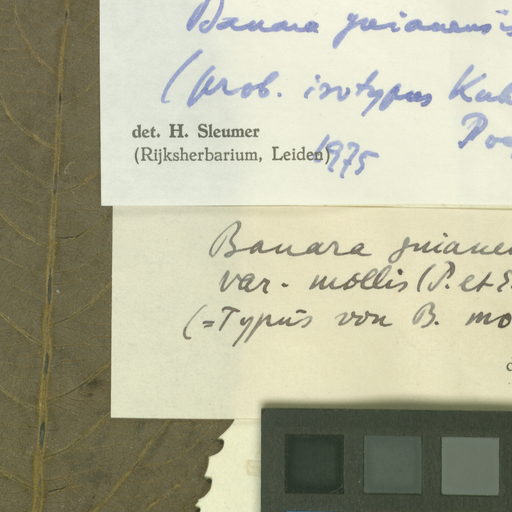 Banara guianensis
(prob. isotypus Kuh
det. H. Sleumer
Poe
(Rijksherbarium, Leiden) 1975
Banara guianen
var. mollis (P. et E
(= Typus von B. mo